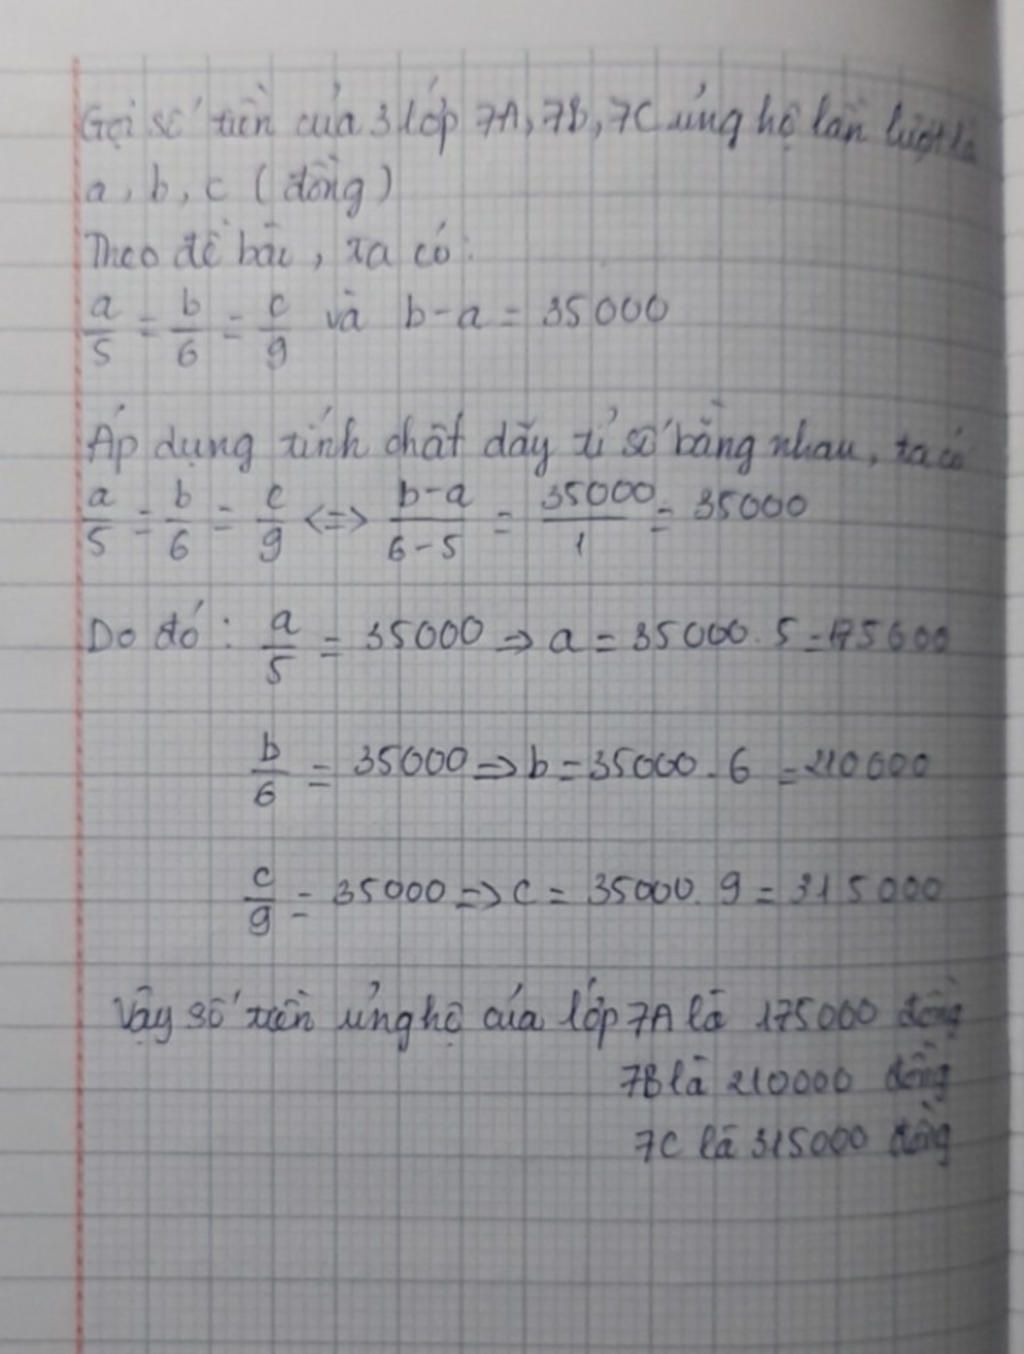 Gọi số tiền của 3 lớp 7A, 7B, 7C ủng hộ lần lượt là
a, b, c (đồng)
Theo đề bài, ta có:
a/5 = b/6 = c/9 và b-a = 35000
Áp dụng tính chất dãy tỉ số bằng nhau, ta có
a/5 = b/6 = c/9 <=> b-a/6-5 = 35000/1 = 35000
Do đó: a/5 = 35000 => a = 35000.5 = 175000
b/6 = 35000 => b = 35000.6 = 210000
c/9 = 35000 => c = 35000.9 = 315000
Vậy số tiền ủng hộ của lớp 7A là 175000 đồng
7B là 210000 đồng
7C là 315000 đồng